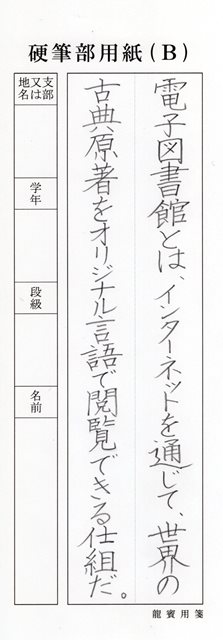 硬筆部用紙（B）
電子図書館とは、インターネットを通じて、世界の
古典原著をオリジナル言語で閲覧できる仕組だ。
支部
又は
地名
学年
段級
名前
龍賓用箋